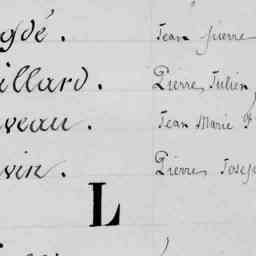 gdé. Jean Pierre
illard. Pierre Julien
veau. Jean Marie
vin. Pierre Joseph
L